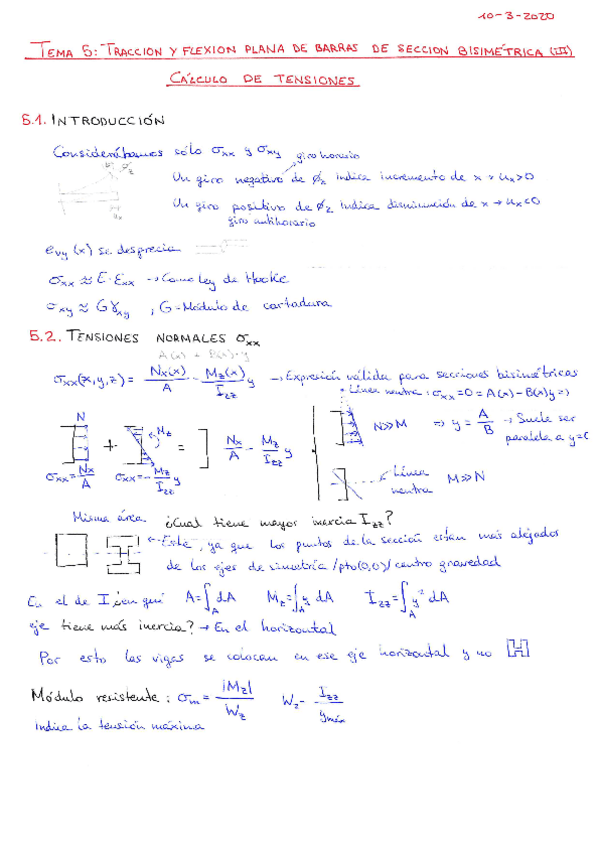 10-3-2020
TEMA 5: TRACCION Y FLEXION PLANA DE BARRAS DE SECCION BISIMÉTRICA (III)
CÁLCULO DE TENSIONES
5.1. INTRODUCCIÓN
Considerábamos sólo σxx y σxy
giro horario
Un giro negativo de ϕz indica incremento de x → ux>0
Un giro positivo de ϕz indica disminución de x → ux<0
giro antihorario
eyy (x) se desprecia
σxx ≈ E·Exx → Como ley de Hooke
σxy ≈ Gγxy , G-Módulo de cortadura
5.2. TENSIONES NORMALES σxx
A(x) + B(x)·y
σxx(x,y,z) = Nx(x)/A - Mz(x)/Izz y → Expresión válida para secciones bisimétricas
Línea neutra: σxx=0=A(x)-B(x)y=>
N + Mz = ] Nx/A - Mz/Izz y
N>>M => y = A/B → Suele ser paralela a y=0
σxx=Nx/A σxx=-Mz/Izz y
Línea neutra M>>N
Misma área. ¿Cual tiene mayor inercia Izz?
Este, ya que los puntos de la sección están más alejados
de los ejes de simetría /pto(0,0)/centro gravedad
En el de I ¿en qué A=∫A dA Mz=∫A y dA Izz=∫A y² dA
eje tiene más inercia? → En el horizontal
Por esto las vigas se colocan en ese eje horizontal y no H
Módulo resistente: σm = |Mz|/Wz Wz- Izz/ymáx
Indica la tensión máxima